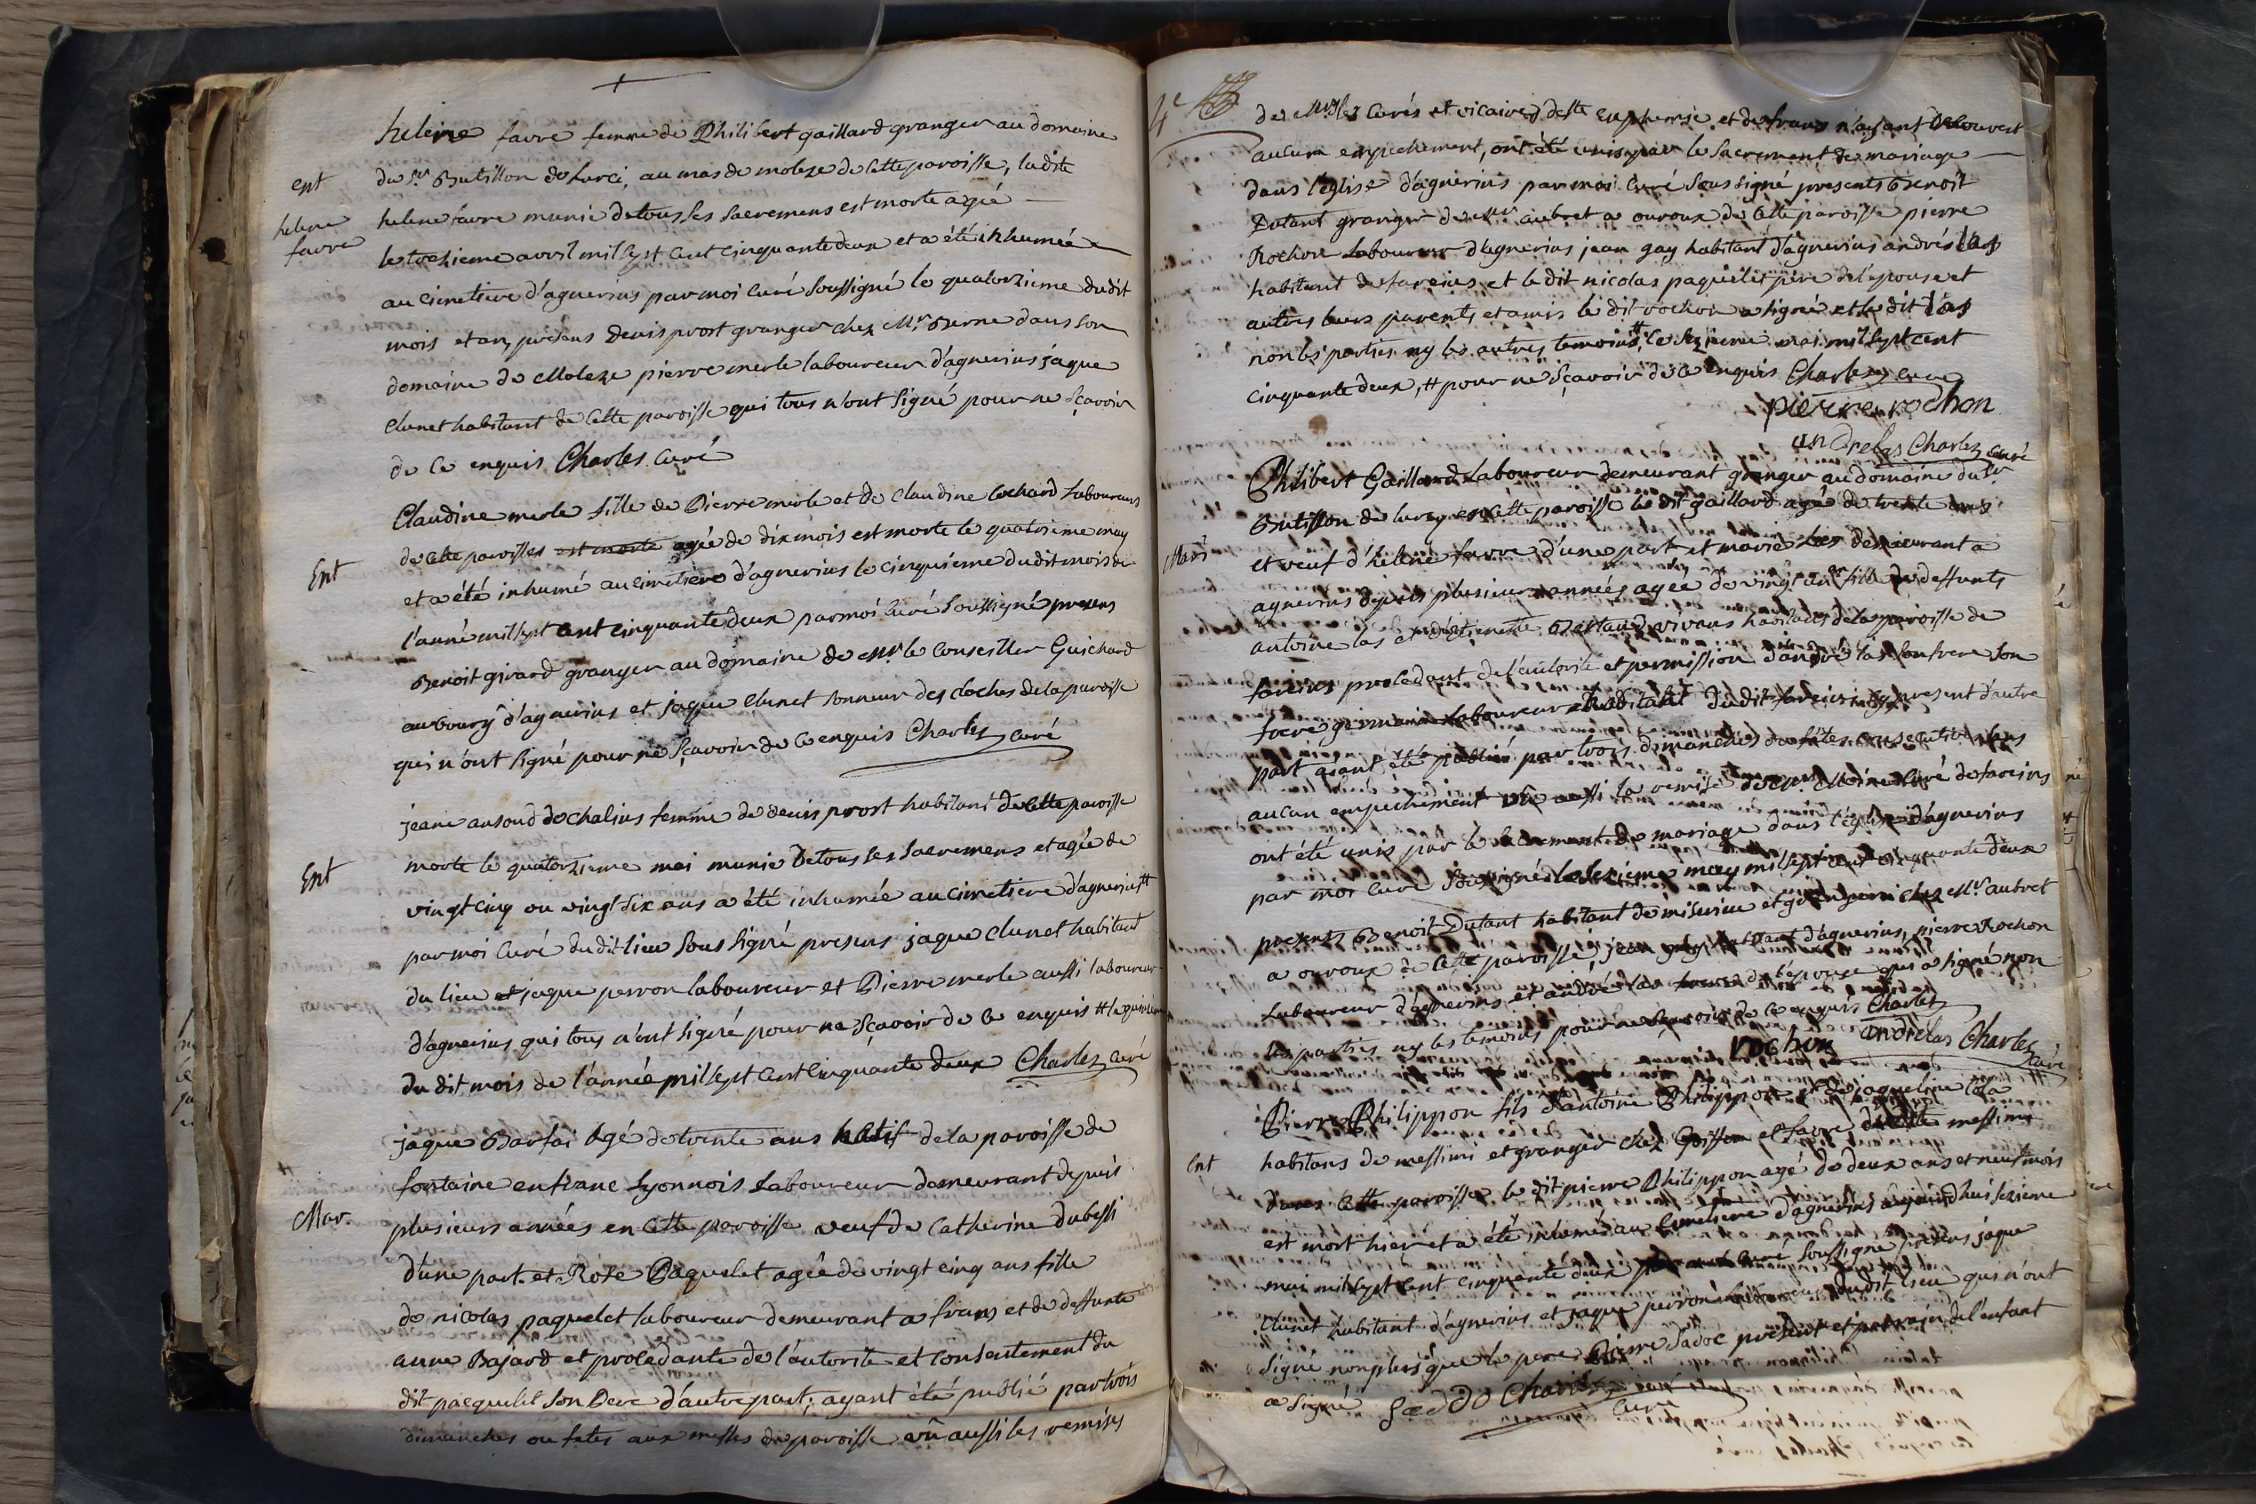 +
helene favre femme de Philibert gaillard granger au domaine
ent
du Sr. Butillon de Lurci, au mas de moleze de cette paroisse, ladite
helene
favre
helene favre munie de tous les sacremens est morte agée
le treizieme avril mil sept cent cinquante deux et a été inhumée
au cimetiere d'agnerins par moi curé soussigné le quatorzieme dudit
mois et an, présens denis prost granger chez Mr. Berne dans son
domaine de Moleze pierre merle laboureur d'agnerins jaque
clunet habitant de cette paroisse qui tous n'ont signé pour ne sçavoir
de ce enquis Charles curé
Claudine merle fille de Pierre merle et de claudine cochard laboureurs
Ent
de cette paroisse est morte agée de dix mois est morte le quatrieme may
et a été inhumé au cimetiere d'agnerins le cinquieme dudit mois de
l'anné mil sept cent cinquante deux par moi curé soussigné presens
Benoit girard granger au domaine de Mr. le conseiller Guichard
au bourg d'agnerins et jaque clunet sonneur des cloches de la paroisse
qui n'ont signé pour ne sçavoir de ce enquis Charles curé
jeane ansoud de chalins femme de denis prost habitant de cette paroisse
Ent
morte le quatorzieme mai munie de tous les sacremens et agée de
vingt cinq ou vingt six ans a été inhumée au cimetiere d'agnerins #
par moi curé dudit lieu sous signé presens jaque clunet habitant
du lieu et jaque perron laboureur et Pierre merle aussi laboureur
d'agnerins qui tous n'ont signé pour ne sçavoir de ce enquis # le quinzieme
du dit mois de l'année mil sept cent cinquante deux Charles curé
jaque Barfai agé de trente ans natif de la paroisse de
fontaine en franc lyonnois laboureur demeurant depuis
Mar.
plusieurs années en cette paroisse veuf de Catherine dubessi
d'une part et Rose Paquelet agée de vingt cinq ans fille
de nicolas paquelet laboureur demeurant a frans et de deffunte
anne Bajard et procedante de l'autorite et consentement du
dit pacquelet son Pere d'autre part, ayant été publié par trois
dimanches ou fetes aux messes de paroisse vû aussi les remises
4e
de Mrs les curés et vicaires de Ste Euphemie et de frans n'ayant decouvert
aucun empechement, ont été unis par le sacrement de mariage
dans l'eglise d'agnerins par moi curé sous signé presents Benoit
Dutant granger de Mr aubret a ouroux de cette paroisse pierre
Rochon laboureur d'agnerins jean gay habitant d'agnerins andré las
habitant de fareins et le dit nicolas paquelet pere de l'epouse et
autres leurs parents et amis le dit rochon a signé et le dit las
non les parties ny les autres temoins # le sezieme mai mil sept cent
cinquante deux, # pour ne sçavoir de ce enquis Charles curé
pierre rochon
andrelas Charles curé
Philibert Gaillard laboureur demeurant granger au domaine du Sr.
Butillon de lurcy en cette paroisse le dit gaillard agé de trente ans
Mari
et veuf d'helene favre d'une part et marie las demeurant a
agnerins depuis plusieurs années agée de vingt ans fille de deffunts
antoine las et Bertaud vivans habitants de la paroisse de
fareins procedant de l'autorité et permission d'andré las son frere son
frere germain laboureur habitant du dit fareins icy present d'autre
part ayant été publié par trois dimanches ou fetes consecutives sans
aucun empechement vû aussi la remise de Mr. Moine curé de fareins
ont été unis par le sacrement de mariage dans l'église d'agnerins
par moi curé soussigné le sezieme may mil sept cent cinquante deux
presents Benoit Dutant habitant de miserieu et granger chez Mr. aubret
a ouroux de cette paroisse, jean gay habitant d'agnerins, pierre Rochon
laboureur d'agnerins et andré las frere de l'epouse qui a signé non
les parties ny les temoins pour ne sçavoir de ce enquis Charles
rochon andrelas Charles curé
Pierre Philippon fils d'antoine Philippon et de jaqueline Cola
Ent
habitans de messimi et granger chez et favre messimi
dans cette paroisse le dit pierre Philippon agé de deux ans et neuf mois
est mort hier et a été inhumé au cimetiere d'agnerins aujourd'hui sezieme
mai mil sept cent cinquante deux par moi curé soussigné presens jaque
clunet habitant d'agnerins et jaque perron laboureur dudit lieu qui n'ont
signé non plus que le pere Pierre Sadoc présent et parrain de l'enfant
a signé Charles curé